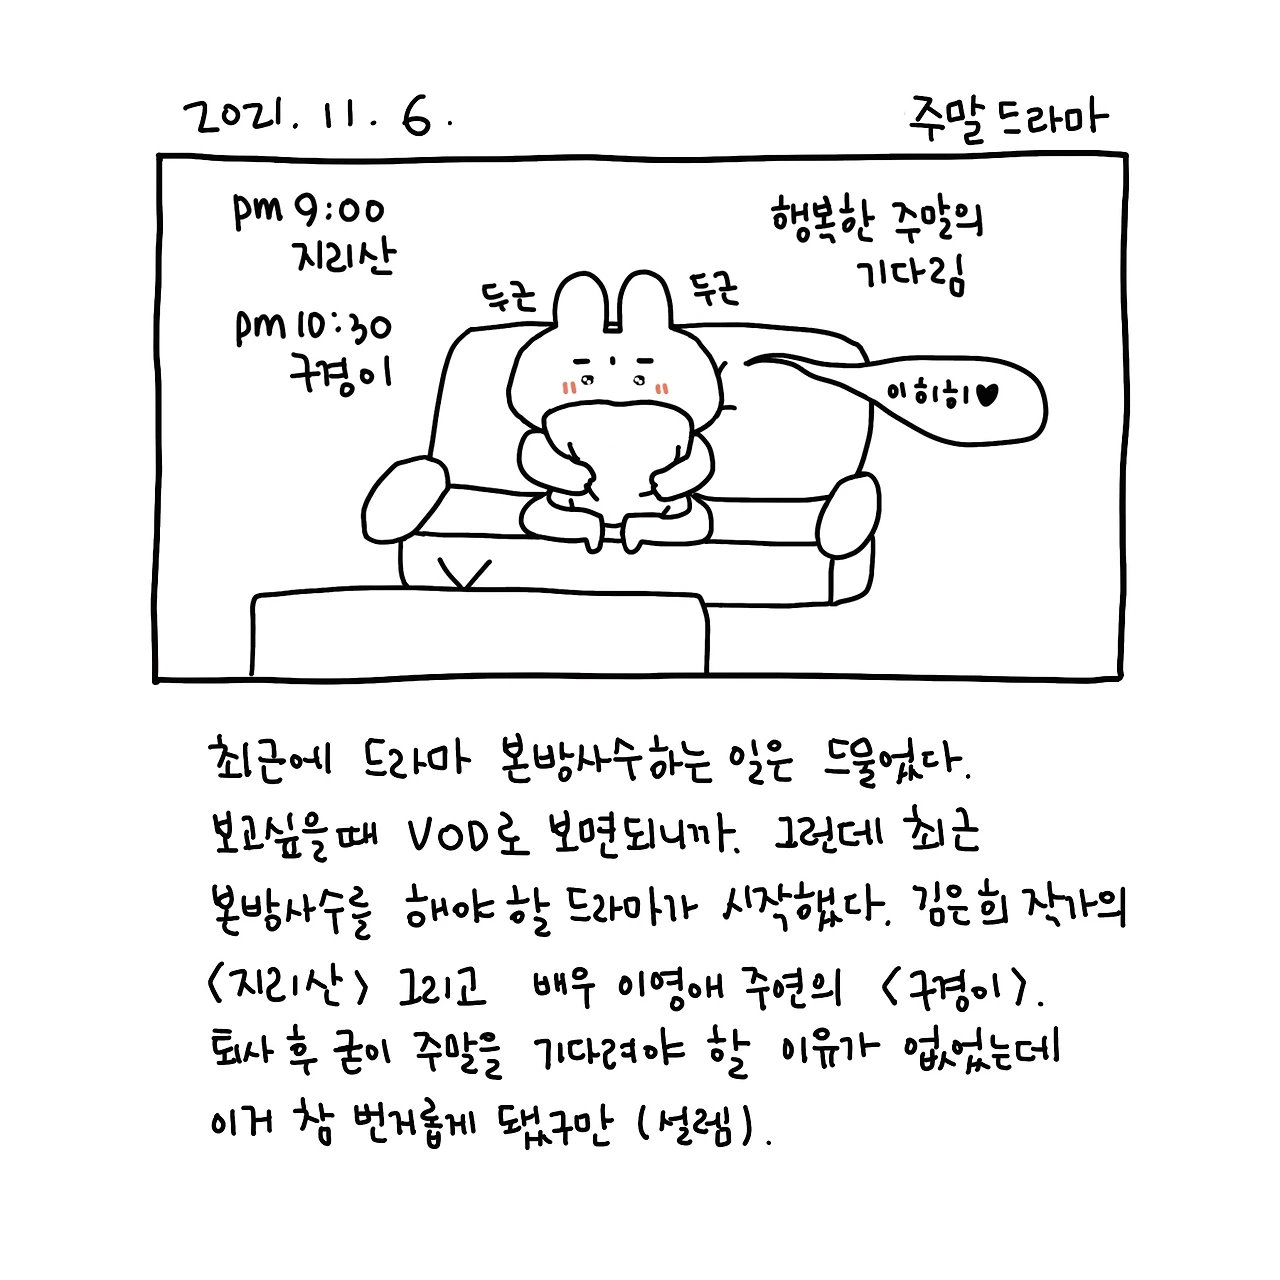 2021. 11. 6.
주말드라마
pm 9:00
지리산
pm 10:30
구경이
행복한 주말의
기다림
두근
두근
이히히♥
최근에 드라마 본방사수하는 일은 드물었다.
보고싶을때 VOD로 보면되니까. 그런데 최근
본방사수를 해야할 드라마가 시작했다. 김은희 작가의
<지리산> 그리고 배우 이영애 주연의 <구경이>.
퇴사 후 굳이 주말을 기다려야 할 이유가 없었는데
이거 참 번거롭게 됐구만 (설렘).